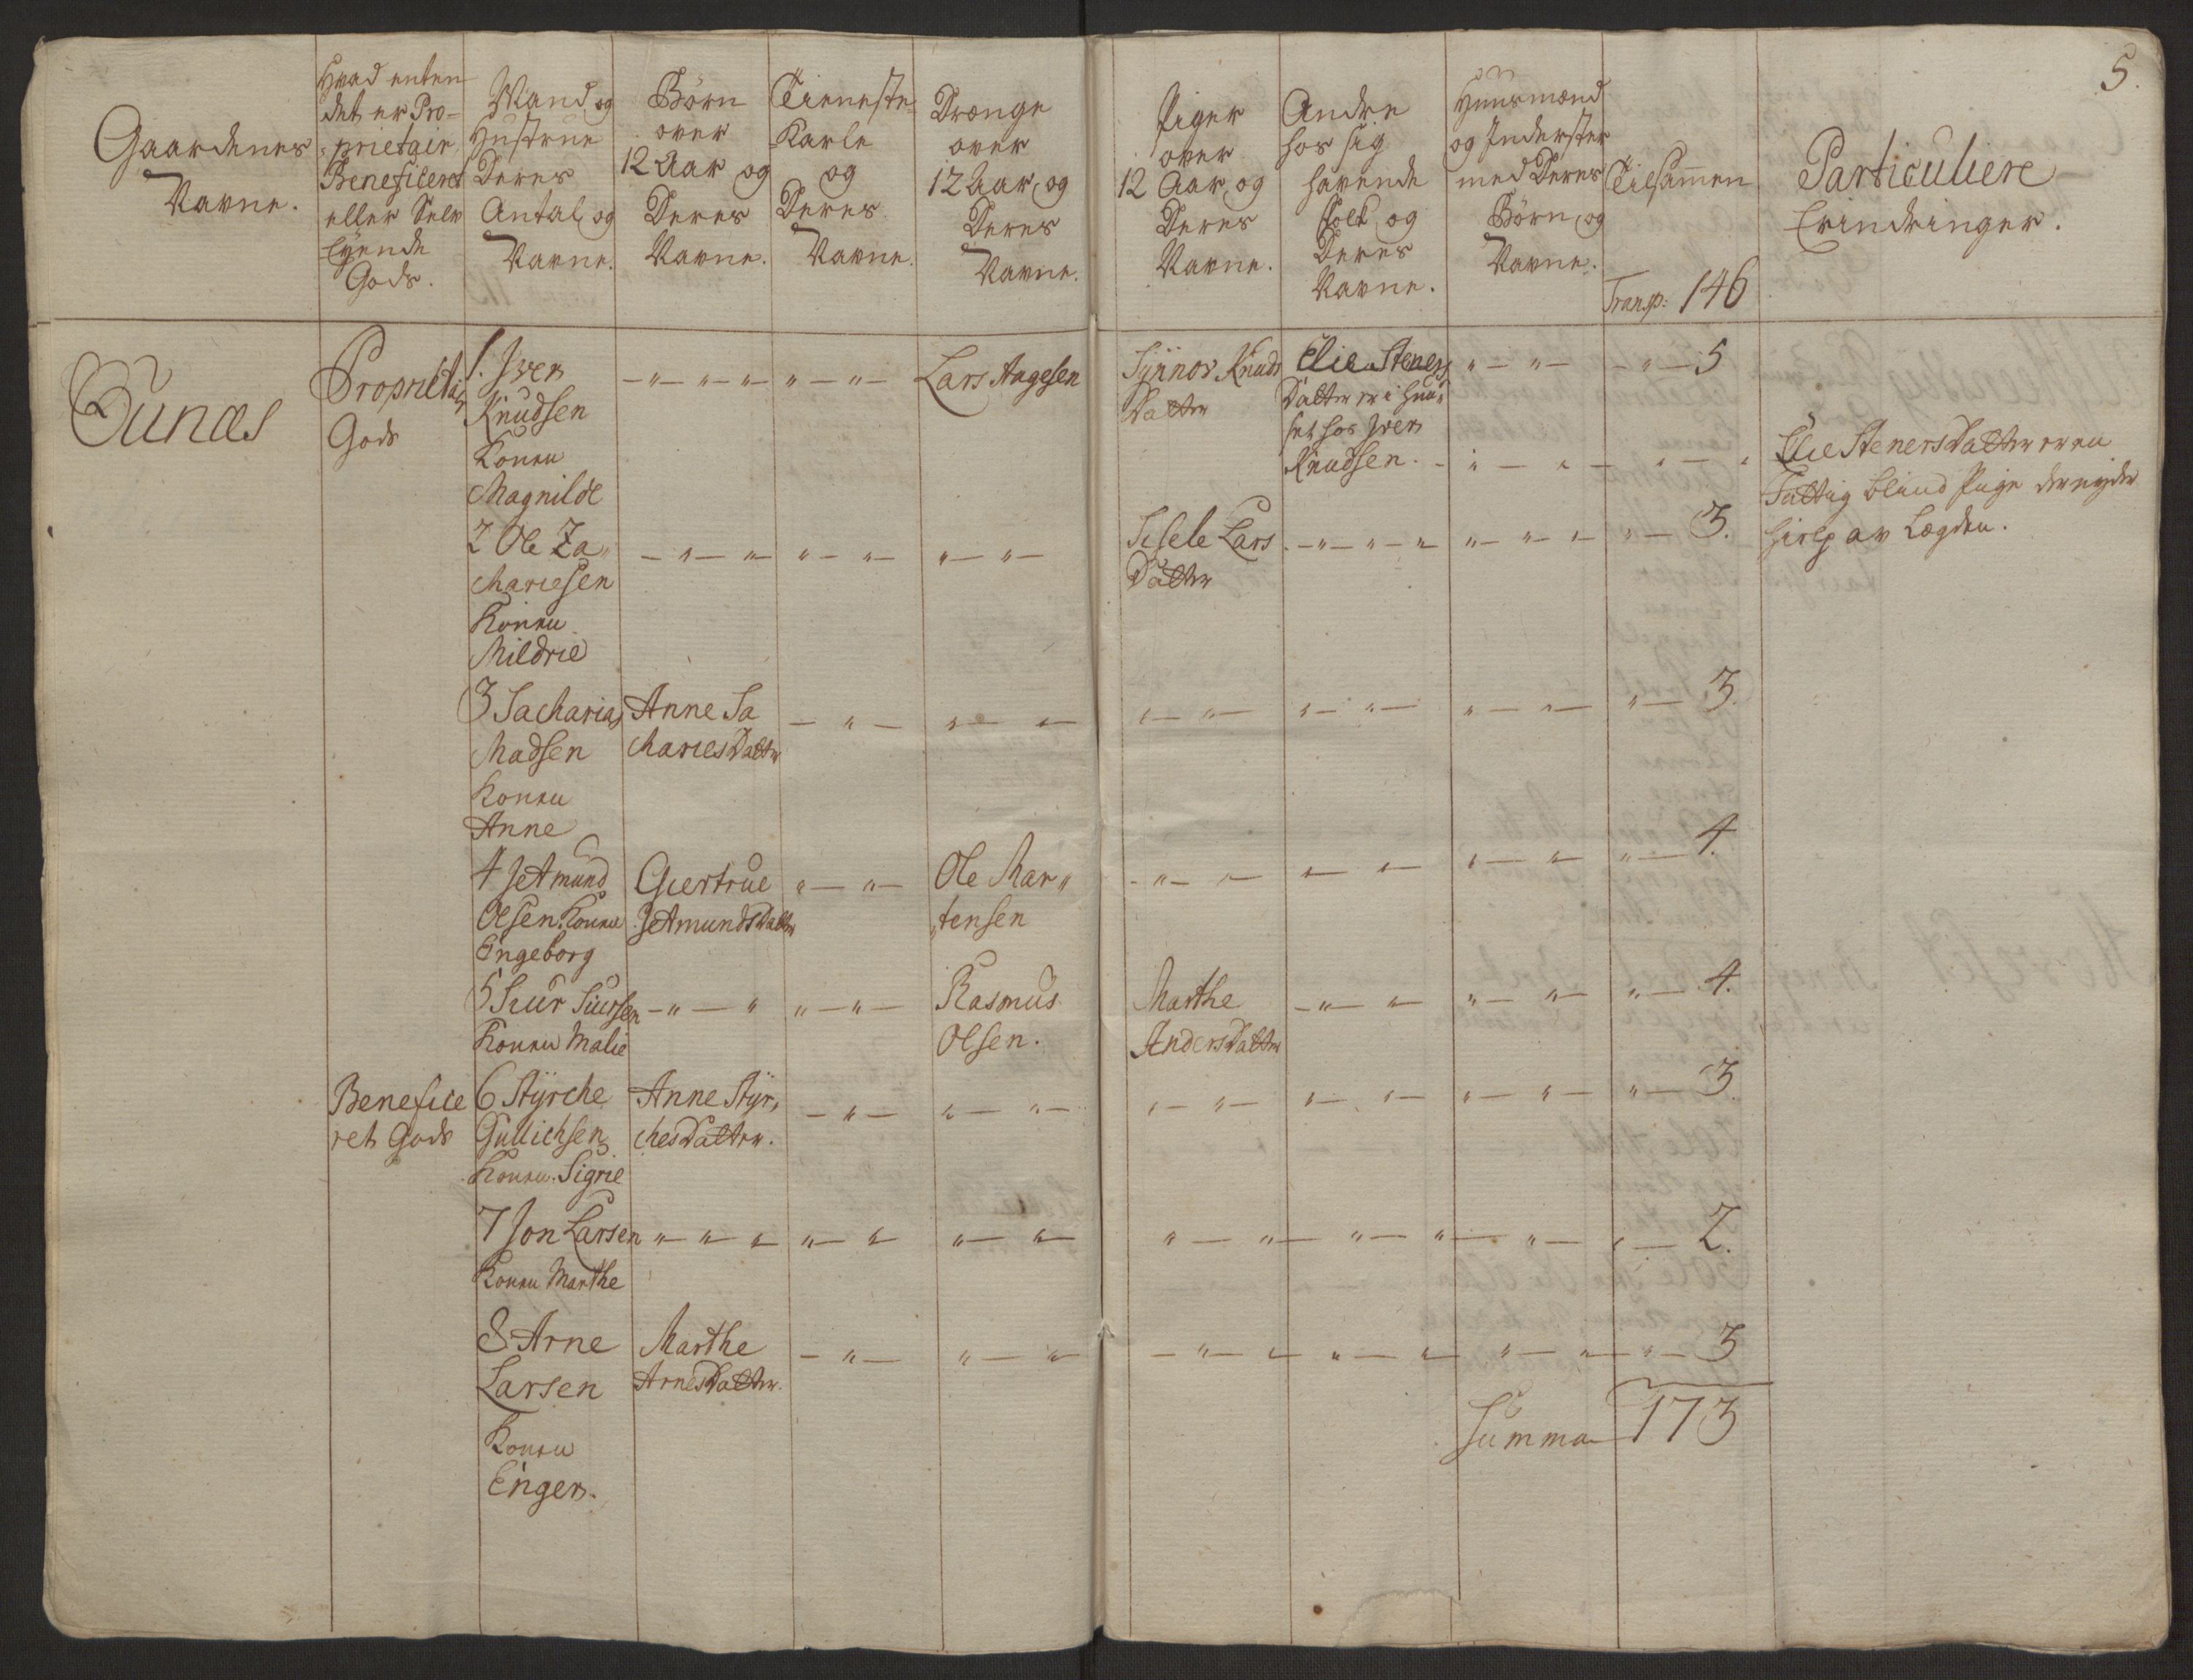 5.
Gaardenes
Navne.
Hvad enten
det er Pro=
=prietair
Beneficeret
eller Selv
Eyende
Gods.
Mand og
Hustrue
Deres
Antal og
Navne.
Børn
over
12 Aar og
Deres
Navne.
Tieneste
Karle
og
Deres
Navne.
Drænge
over
12 Aar, og
Deres
Navne.
Piger
over
12 Aar, og
Deres
Navne.
Andre
hos sig
havende
Folk og
Deres
Navne.
Huusmænd
og Inderster
med Deres
Børn, og
Navne.
Tilsamen
Transp: 146
Particuliere
Erindringer.
Sunds
Proprietair
Gods
1. Iver
Knudsen
Konen
Magnilde
Lars Aagesen
Synnov Knuds
Datter
Elie Steners
Datter er i huu=
set hos Iver
Knudsen.
5
Elie Steners Datter er en
Fattig blind Pige der nyder
hielp av Lægden.
2 Ole Za=
chariesen
Konen
Mildrie
Sisele Lars
Datter
3.
3 Sacharias
Madsen
Konen
Anne
Anne Sa
charies Datter
3.
4 Jetmund
Olsen. Konen
Engeborg
Giertrue
Jetmunds Datter
Ole Mar=
tensen
4.
5 Siur Siursen
Konen Malie
Rasmus
Olsen.
Marthe
Anders Datter
4.
Benefice
ret Gods
6 Styrche
Gullichsen
Konen. Sigrie
Anne Styr=
ches Datter.
3.
7 Jon Larsen
Konen Marthe
2.
8 Arne
Larsen
Konen
Enger.
Marthe
Arnes Datter.
3
Summa 173